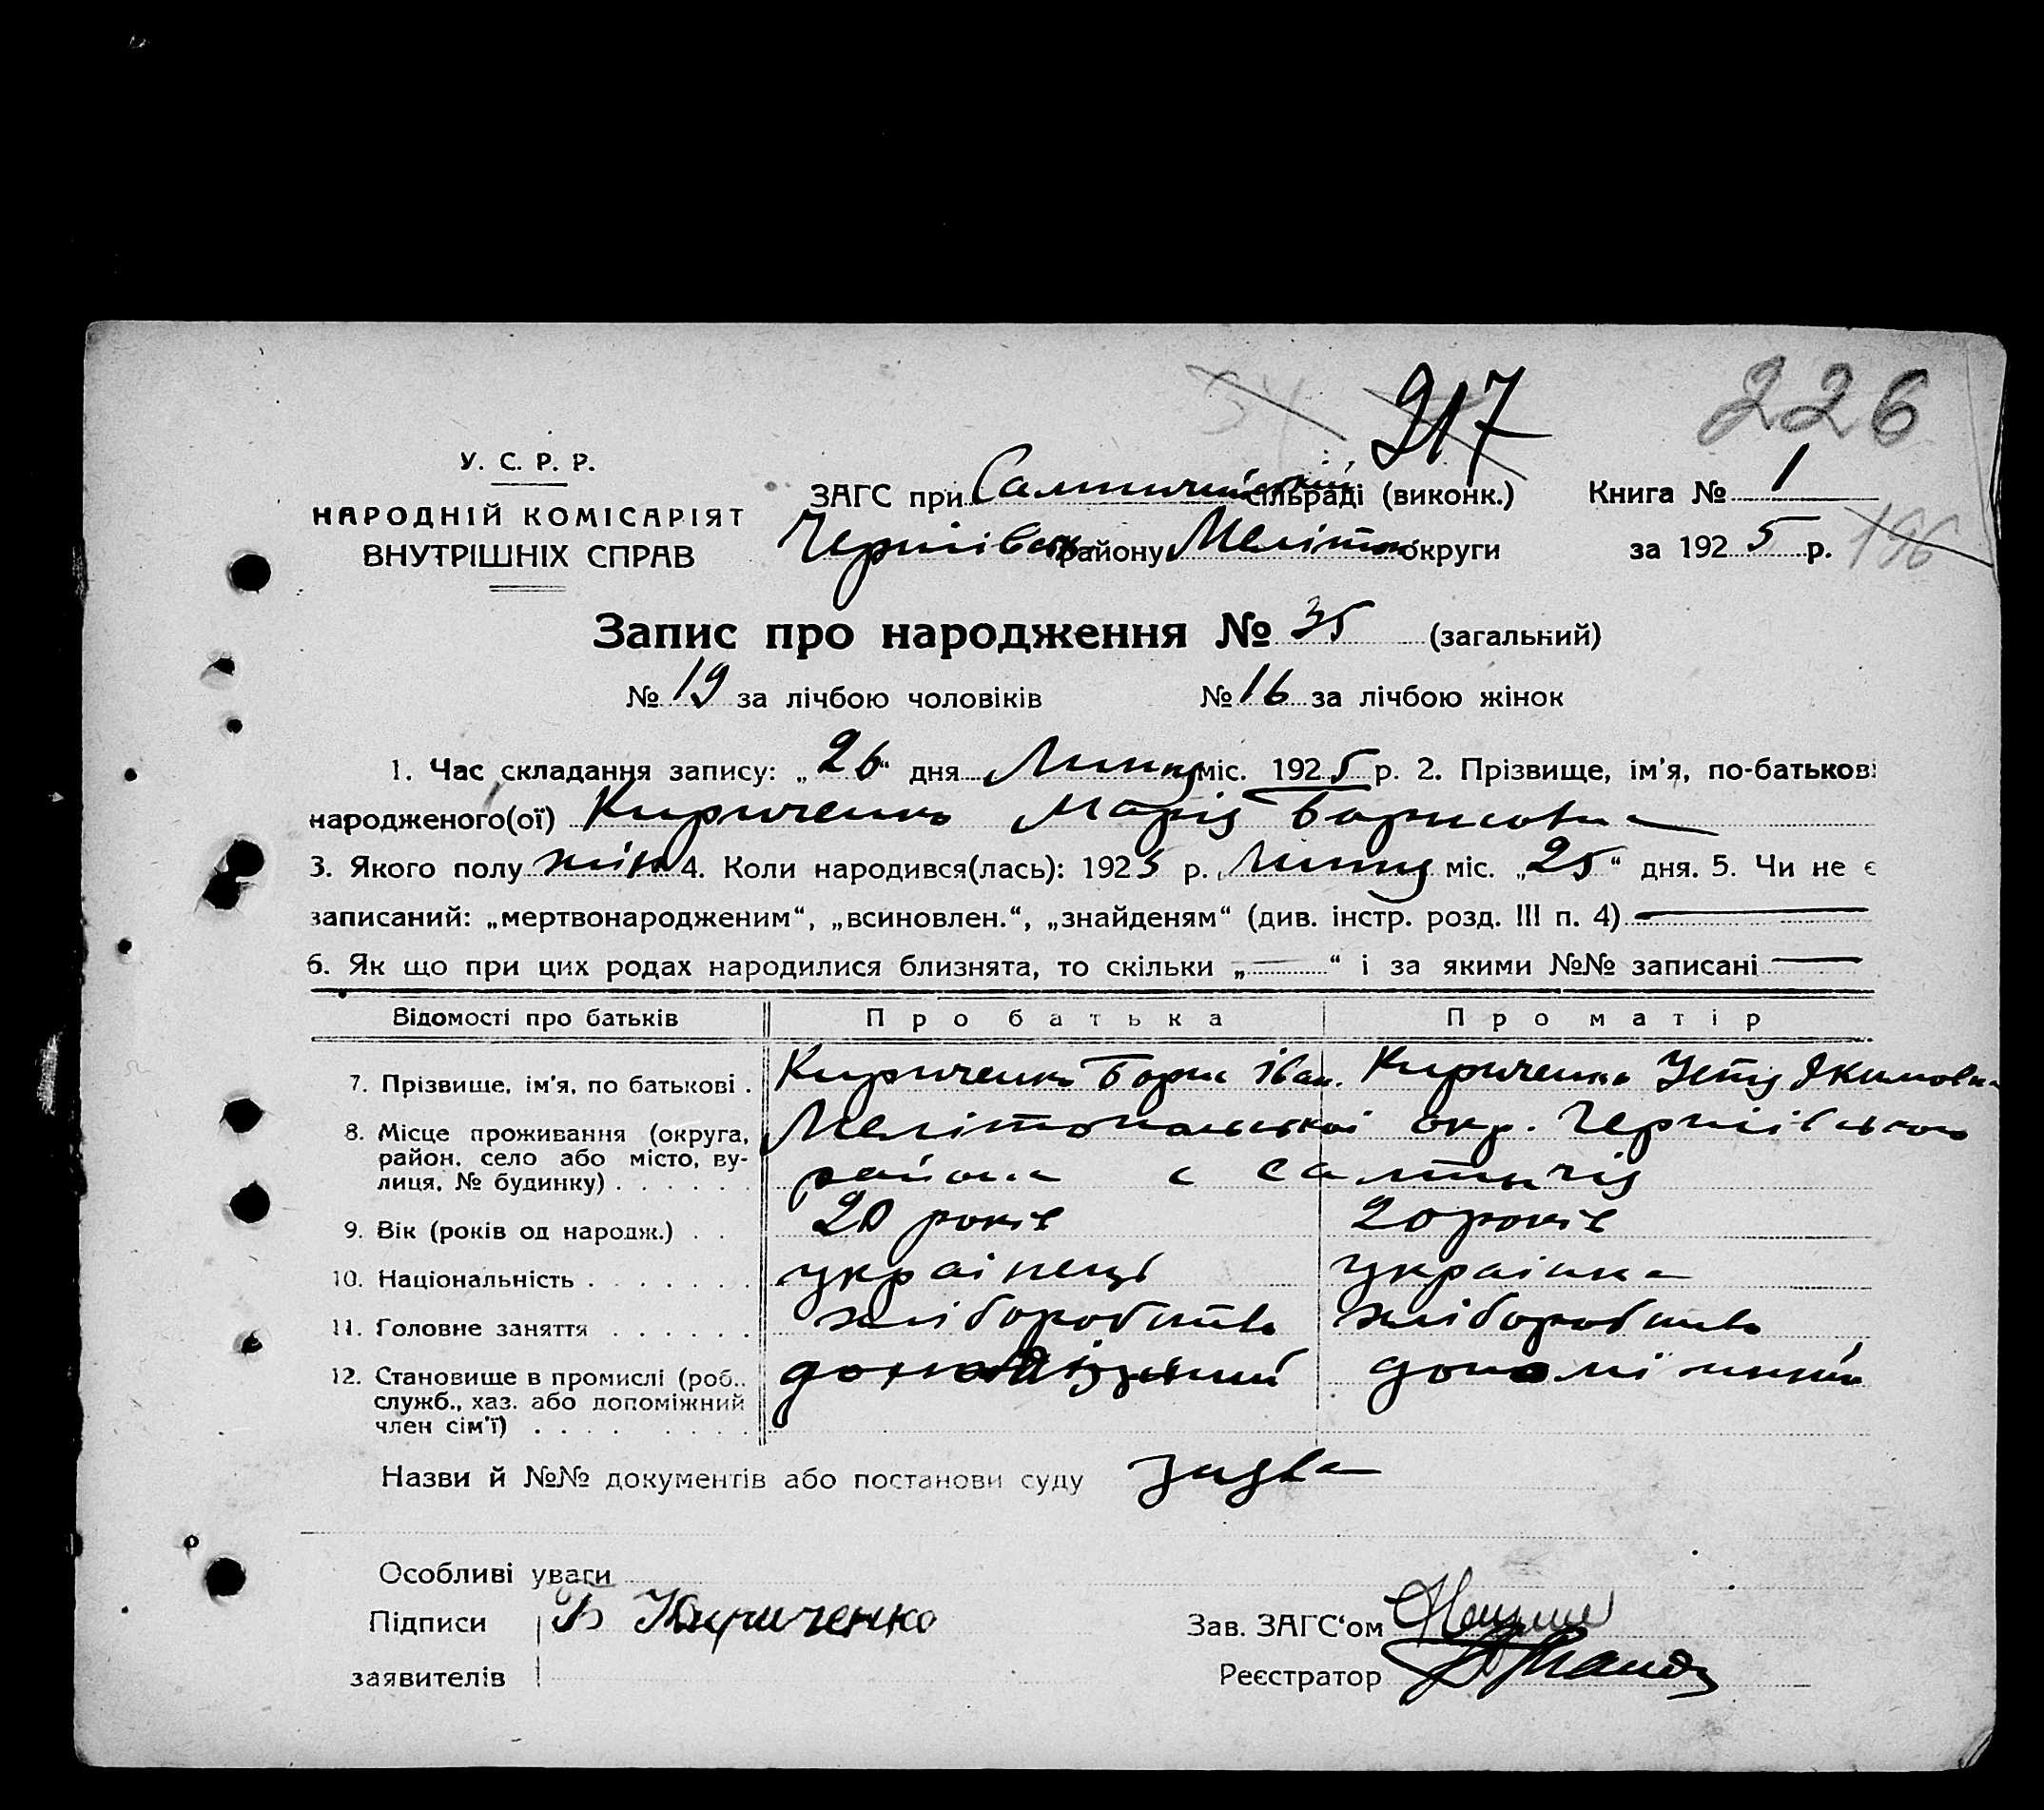 217 226
У. С. Р. Р.
НАРОДНІЙ КОМІСАРІЯТ
ВНУТРІШНІХ СПРАВ
ЗАГС при Салтичійській сільраді (виконк.) Книга № 1
Чернігівськ району Меліто округи за 1925 р. 196
Запис про народження № 35 (загальний)
№ 19 за лічбою чоловіків № 16 за лічбою жінок
1. Час складання запису: „26“ дня Липня міс. 1925 р. 2. Прізвище, ім'я, по-батькові
народженого(ої) Кириченко Марія Борисовна
3. Якого полу жін 4. Коли народився(лась): 1925 р. Липня міс. „25“ дня. 5. Чи не є
записаний: „мертвонародженим“, „всиновлен.“, „знайденям“ (див. інстр. розд. III п. 4)
6. Як що при цих родах народилися близнята, то скільки „ “ і за якими №№ записані
Відомості про батьків Про батька Про матір
7. Прізвище, ім'я, по батькові . Кириченко Борис Іван. Кириченко Устя Якимовна
8. Місце проживання (округа, Мелітопольської окр. Чернігівського
район, село або місто, ву- района с Салтичія
лиця, № будинку) . . . . . .
9. Вік (років од народж.) . . 20 років 20 років
10. Національність . . . . . . . українець українка
11. Головне заняття . . . . . . хліборобство хліборобство
12. Становище в промислі (роб.. допоміжний
служб., хаз. або допоміжний
член сім'ї) . . . . . . . .
Назви й №№ документів або постанови суду заява
Особливі уваги
Підписи Б Кириченко Зав. ЗАГС'ом
заявителів Реєстратор